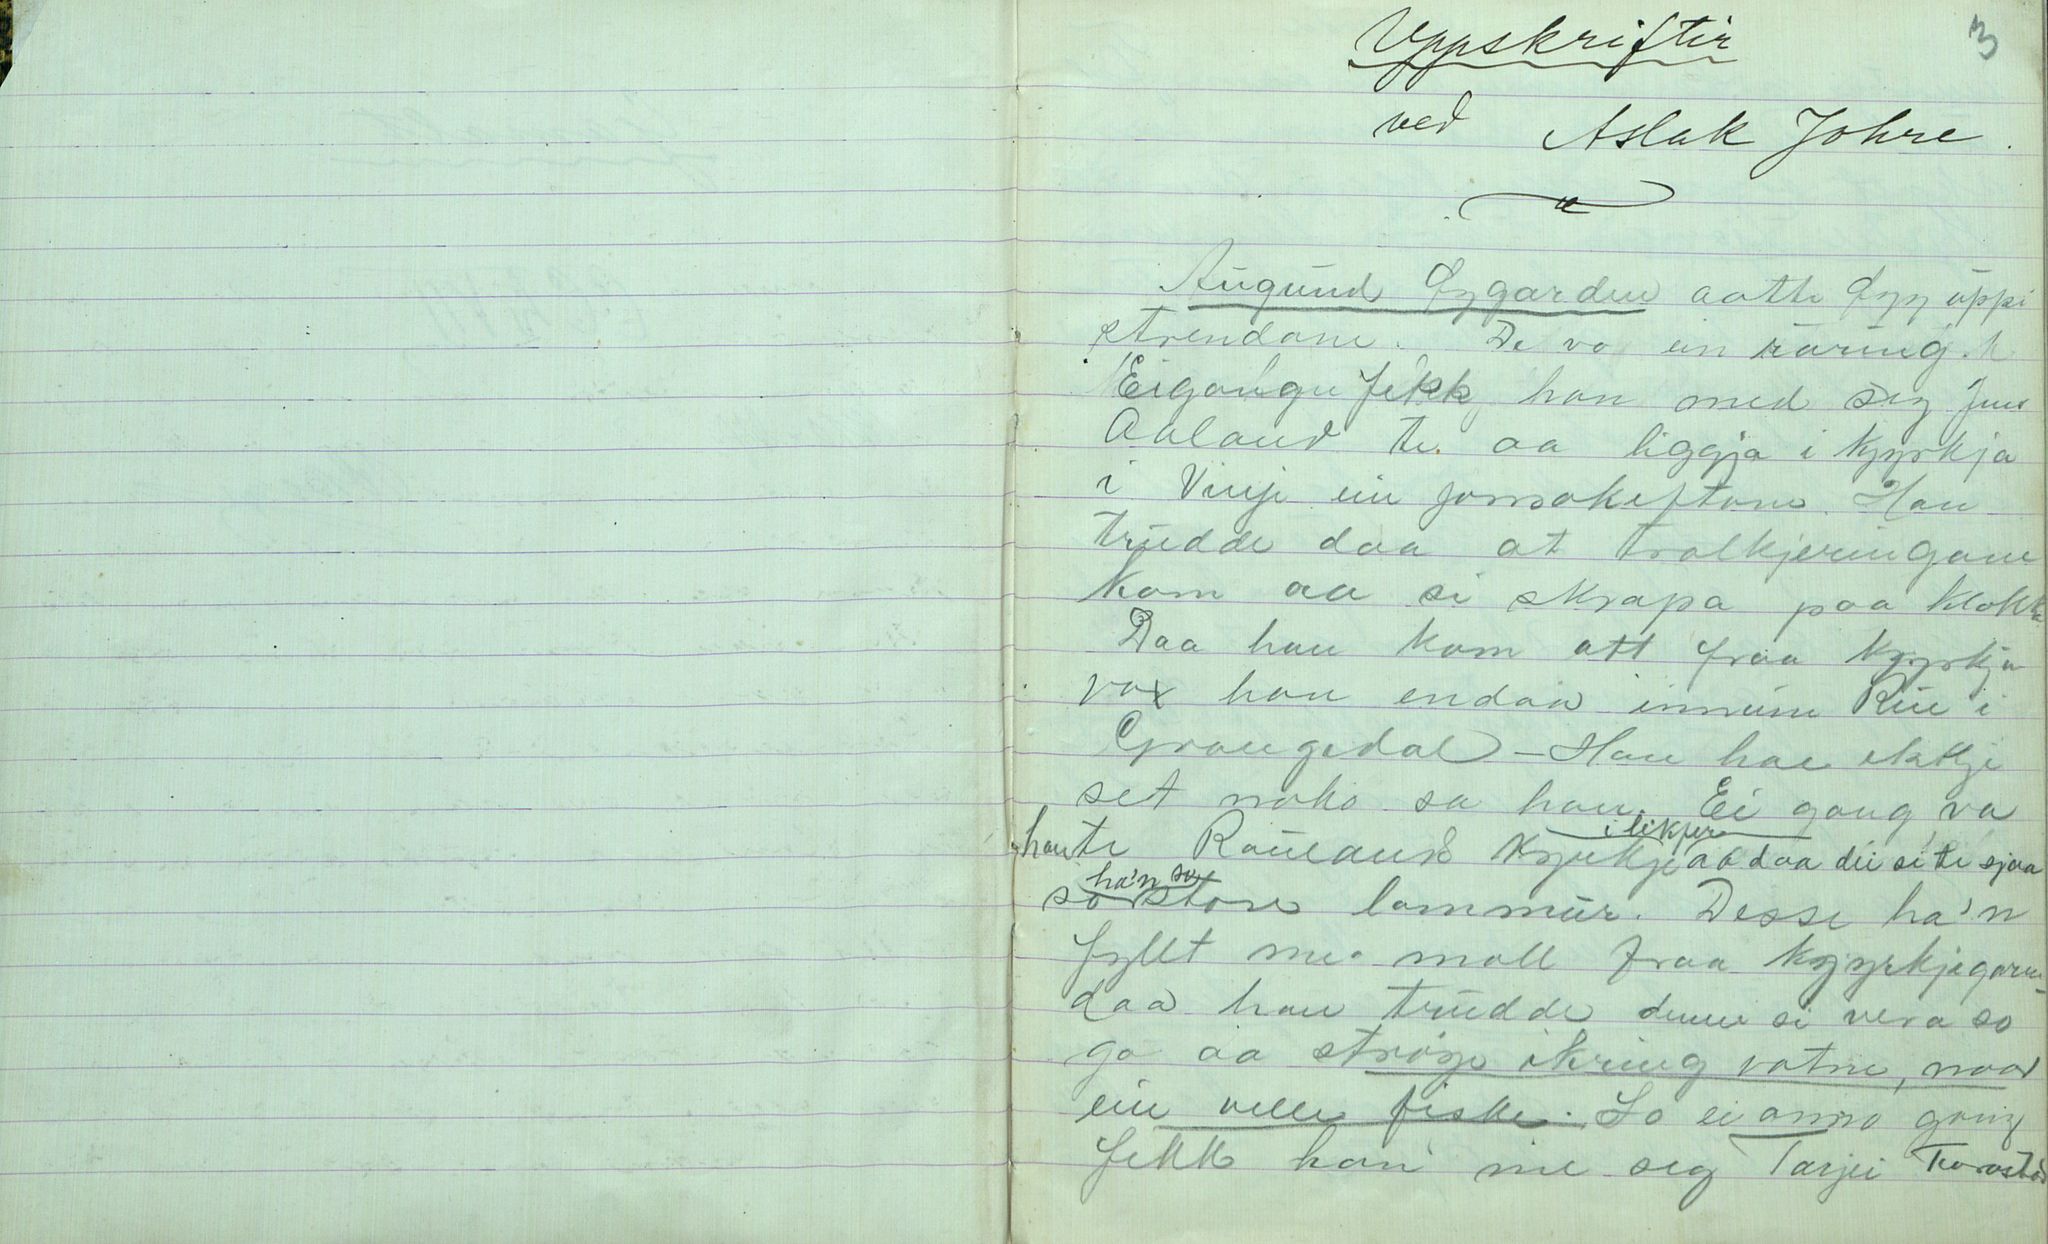 3
Uppskriftir
ved Aslak Johre.
Augund Øygarden aatte Øyg uppi
strendane. De va ein raring.
Eigongu fekk han med seg Jens
Aaland te aa liggja i kyyrkja
i Vinje ein jonsokeftane. Han
trudde daa at trolkjeringane
kom aa si skrapa paa klokka
Daa han kom att fraa kyyrkja
var han endaa innum Rui i
Grungedal – Han hae ikkje
set noko sa han. Ei gong va
i likfer
han te Rauland kyrkje aa daa dei si te sjaa
ha'n so
so store lommur. Desse ha'n
fyllt me moll fraa kyyrkjegaren
daa han trudde denne si vera so
go aa strøye ikring vatne, naar
ein ville fiske. So ei anna gong
fekk han me seg Tarjei